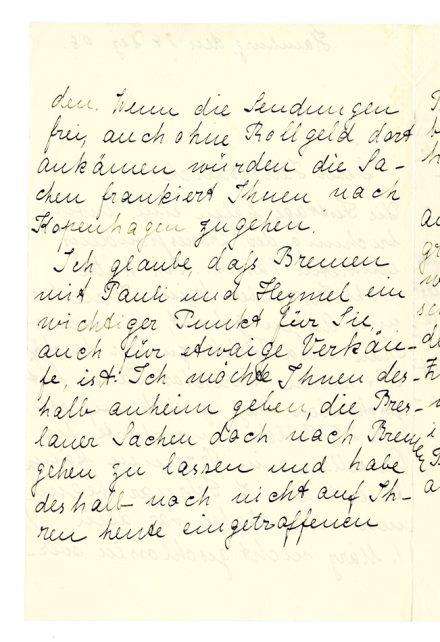 den. Wenn die Sendungen
frei, auch ohne Rollgeld dort
ankämen würden die Sa-
chen frankiert Ihnen nach
Kopenhagen zugehen.
Ich glaube, daß Bremen
mit Pauli und Heymel ein
wichtiger Punkt für Sie,
auch für etwaige Verkäu-
fe, ist. Ich möchte Ihnen des-
halb anheim geben, die Bres-
lauer Sachen doch nach Bremen
gehen zu lassen und habe
deshalb noch nicht auf Ih-
ren heute eingetroffenen